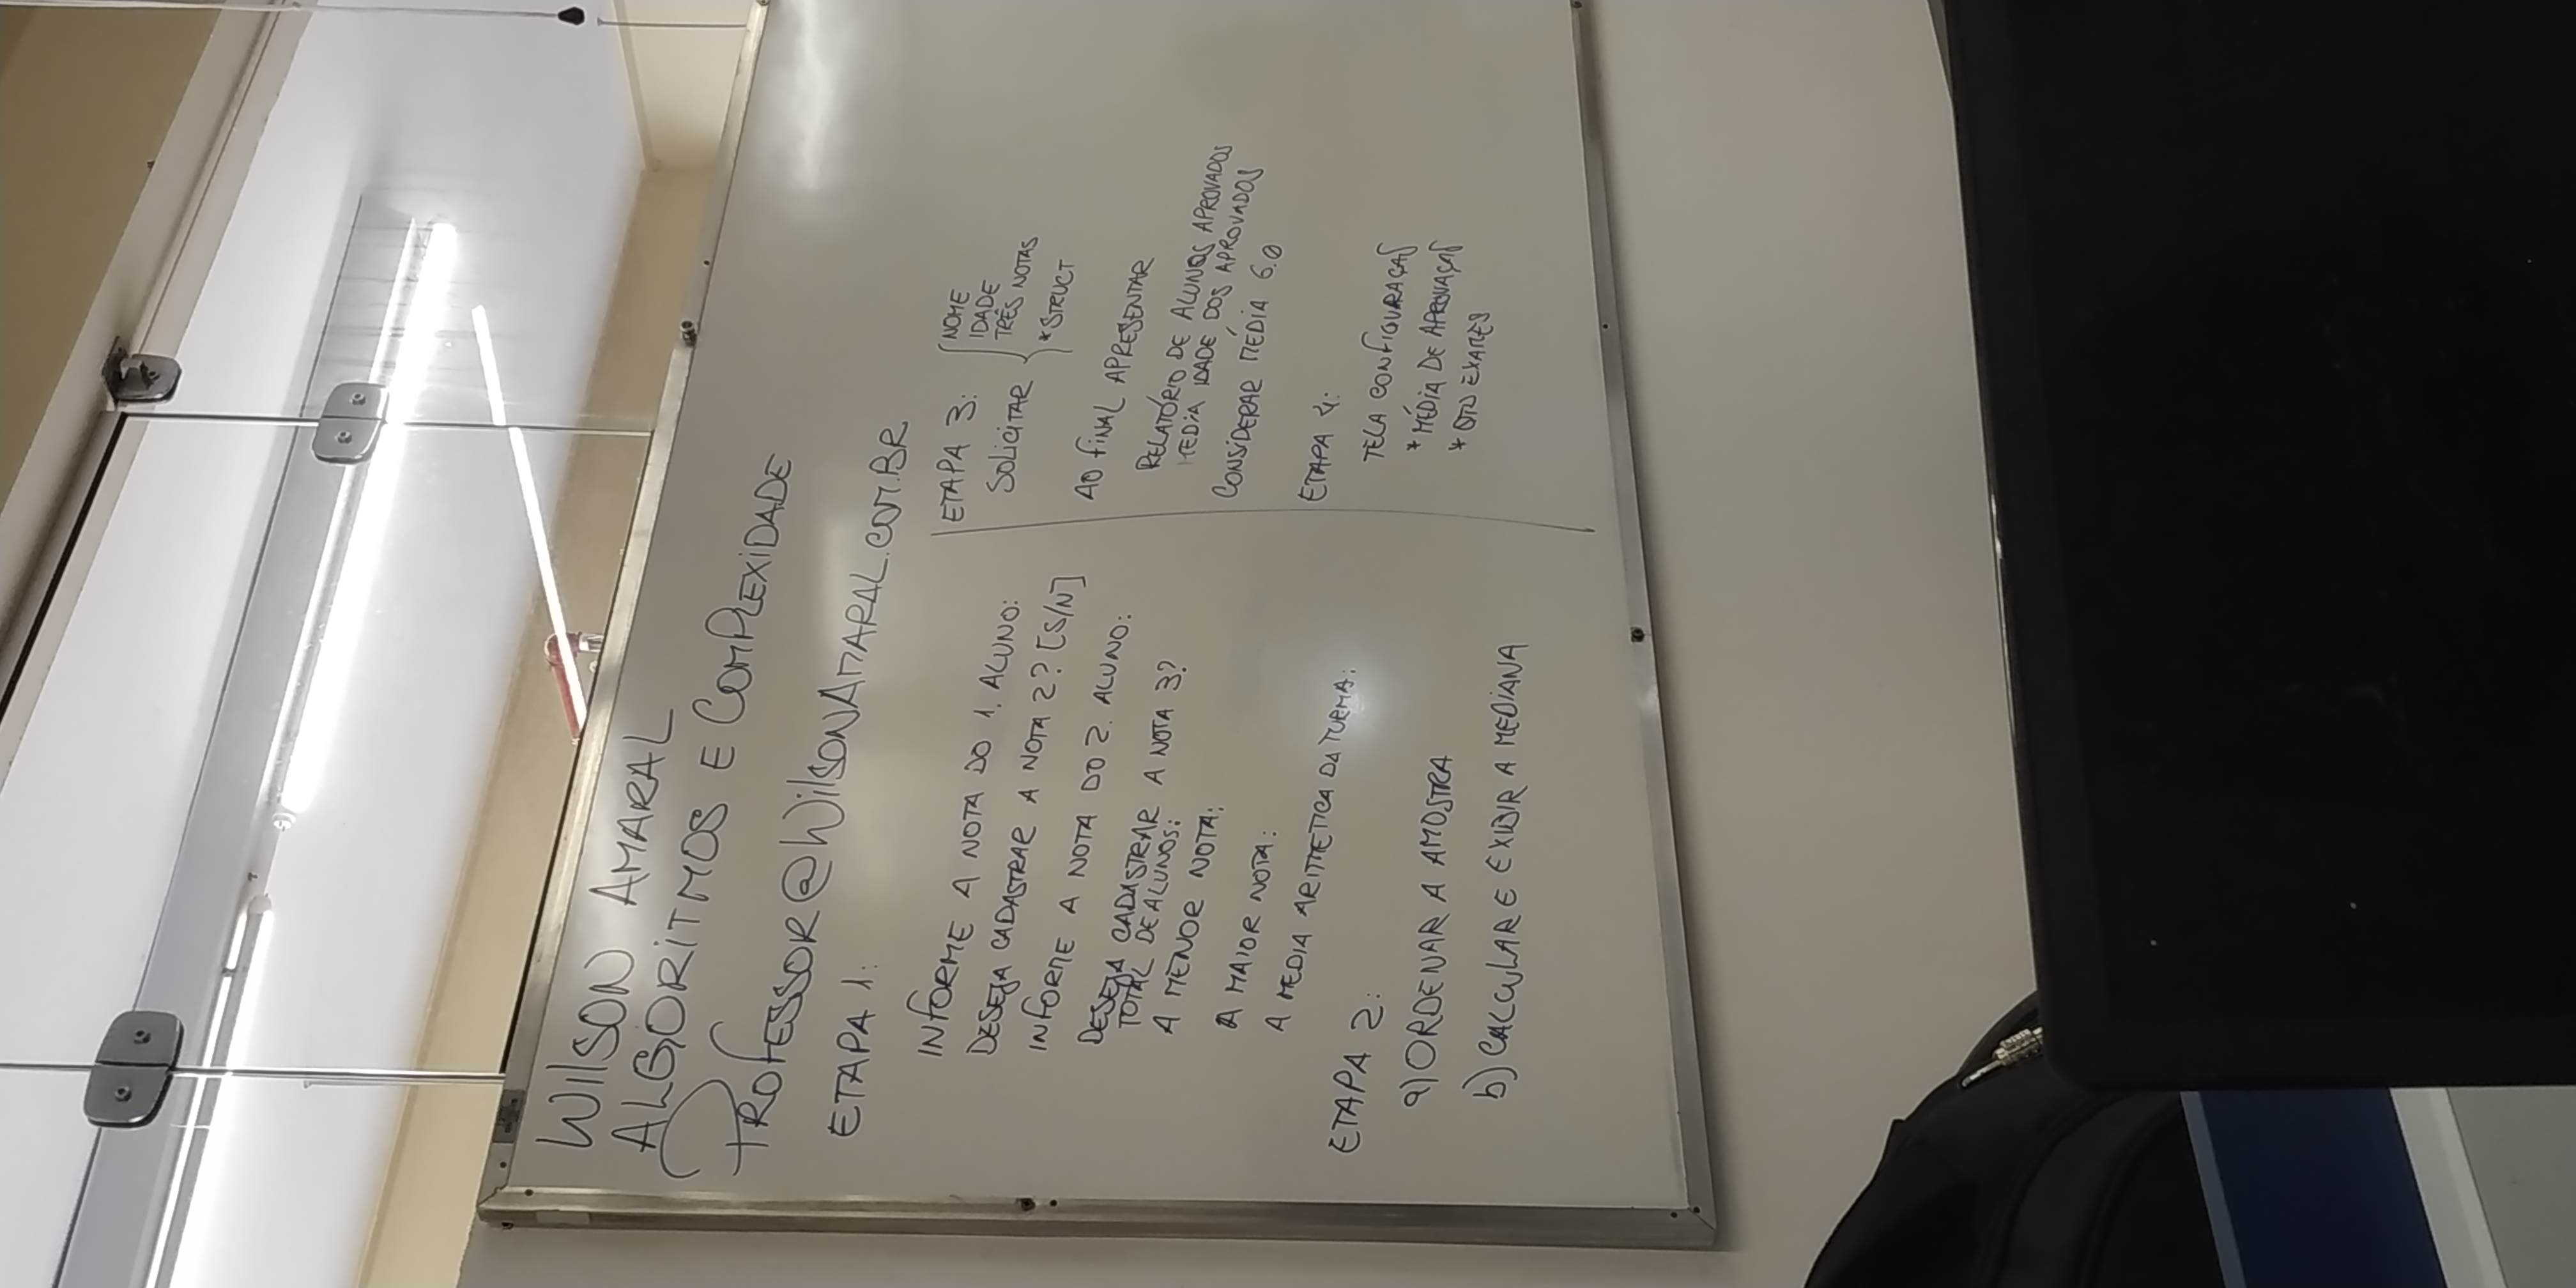 WILSON AMARAL
ALGORITMOS E COMPLEXIDADE
PROFESSOR@WILSONAMARAL.COM.BR
ETAPA 1:
INFORME A NOTA DO 1. ALUNO:
DESEJA CADASTRAR A NOTA 2? [S/N]
INFORME A NOTA DO 2. ALUNO:
DESEJA CADASTRAR A NOTA 3?
TOTAL DE ALUNOS:
A MENOR NOTA:
A MAIOR NOTA:
A MEDIA ARITMETICA DA TURMA:
ETAPA 2:
a) ORDENAR A AMOSTRA
b) CALCULAR E EXIBIR A MEDIANA
ETAPA 3:
SOLICITAR
NOME
IDADE
TRÊS NOTAS
*STRUCT
AO FINAL APRESENTAR
RELATÓRIO DE ALUNOS APROVADOS
MEDIA IDADE DOS APROVADOS
CONSIDERAR MÉDIA 6.0
ETAPA 4:
TELA CONFIGURAÇÃO
* MÉDIA DE APROVAÇÃO
* QTD EXAMES